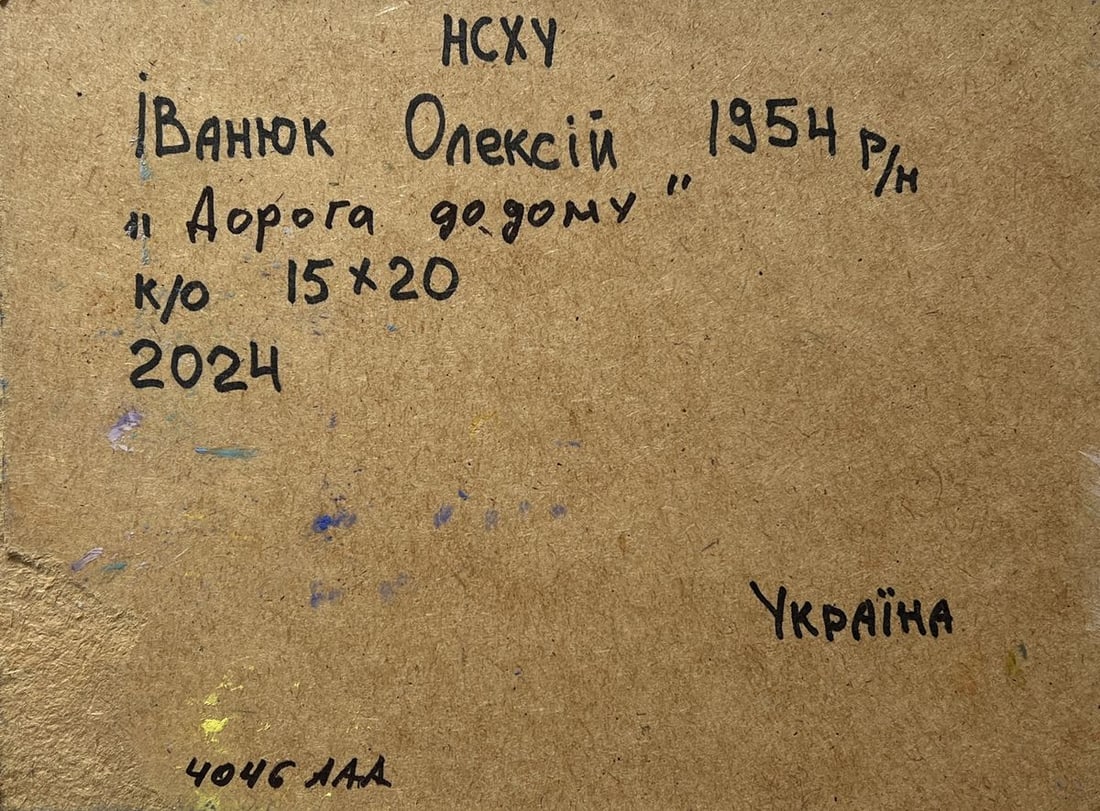 НСХУ
Іванюк Олексій 1954 р/н
„Дорога додому"
к/о 15х20
2024
Україна
4046 ЛАД